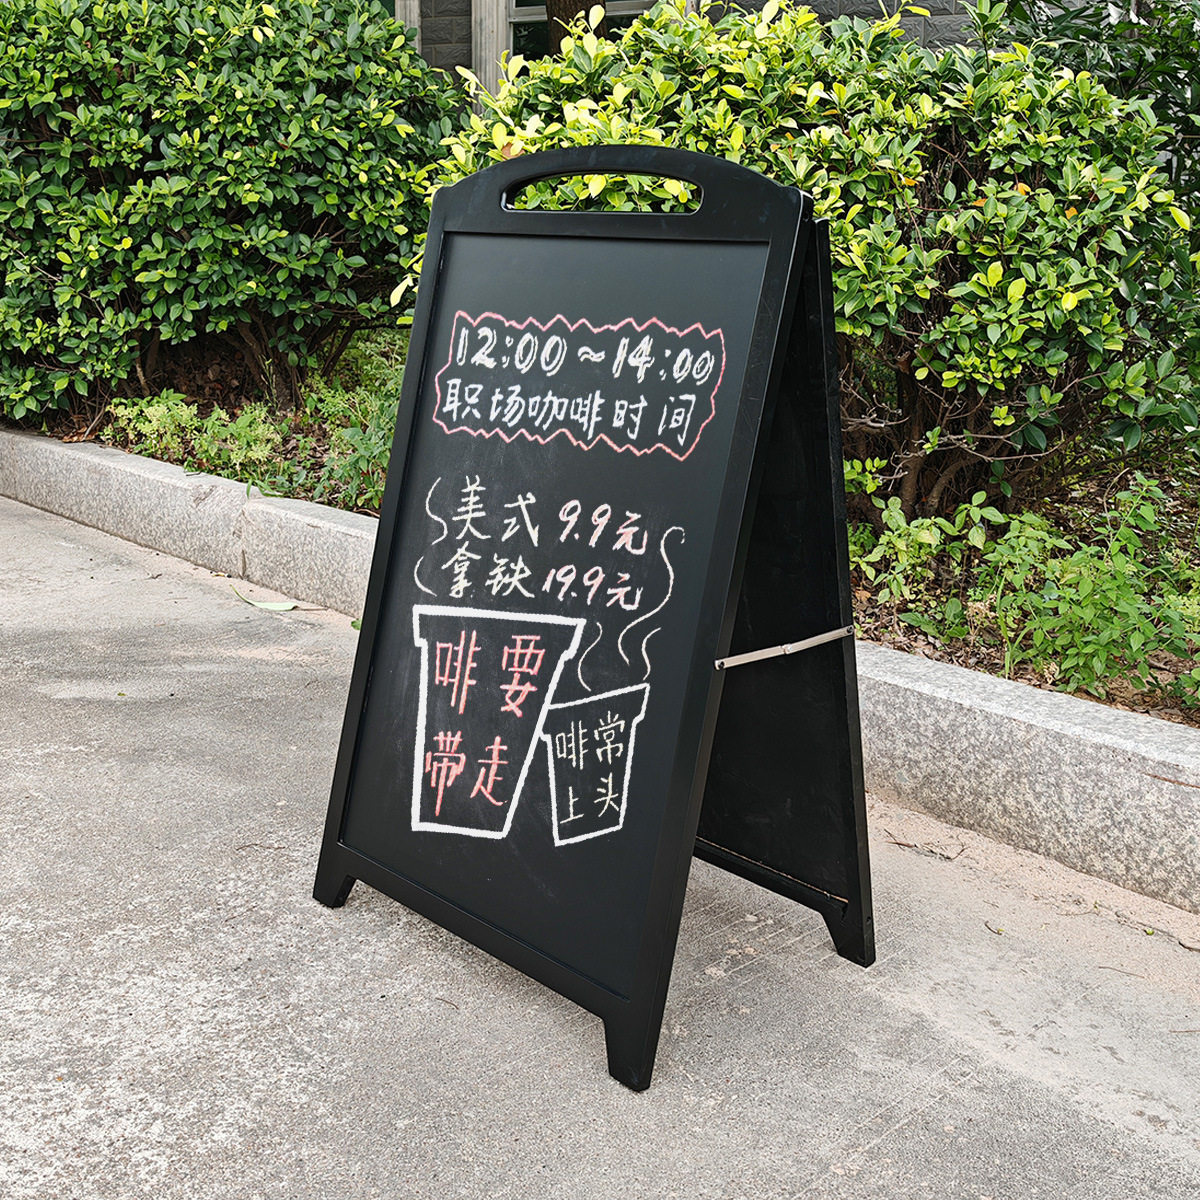 12:00~14:00
职场咖啡时间
美式 9.9元
拿铁 19.9元
啡要
带走
啡常
上头